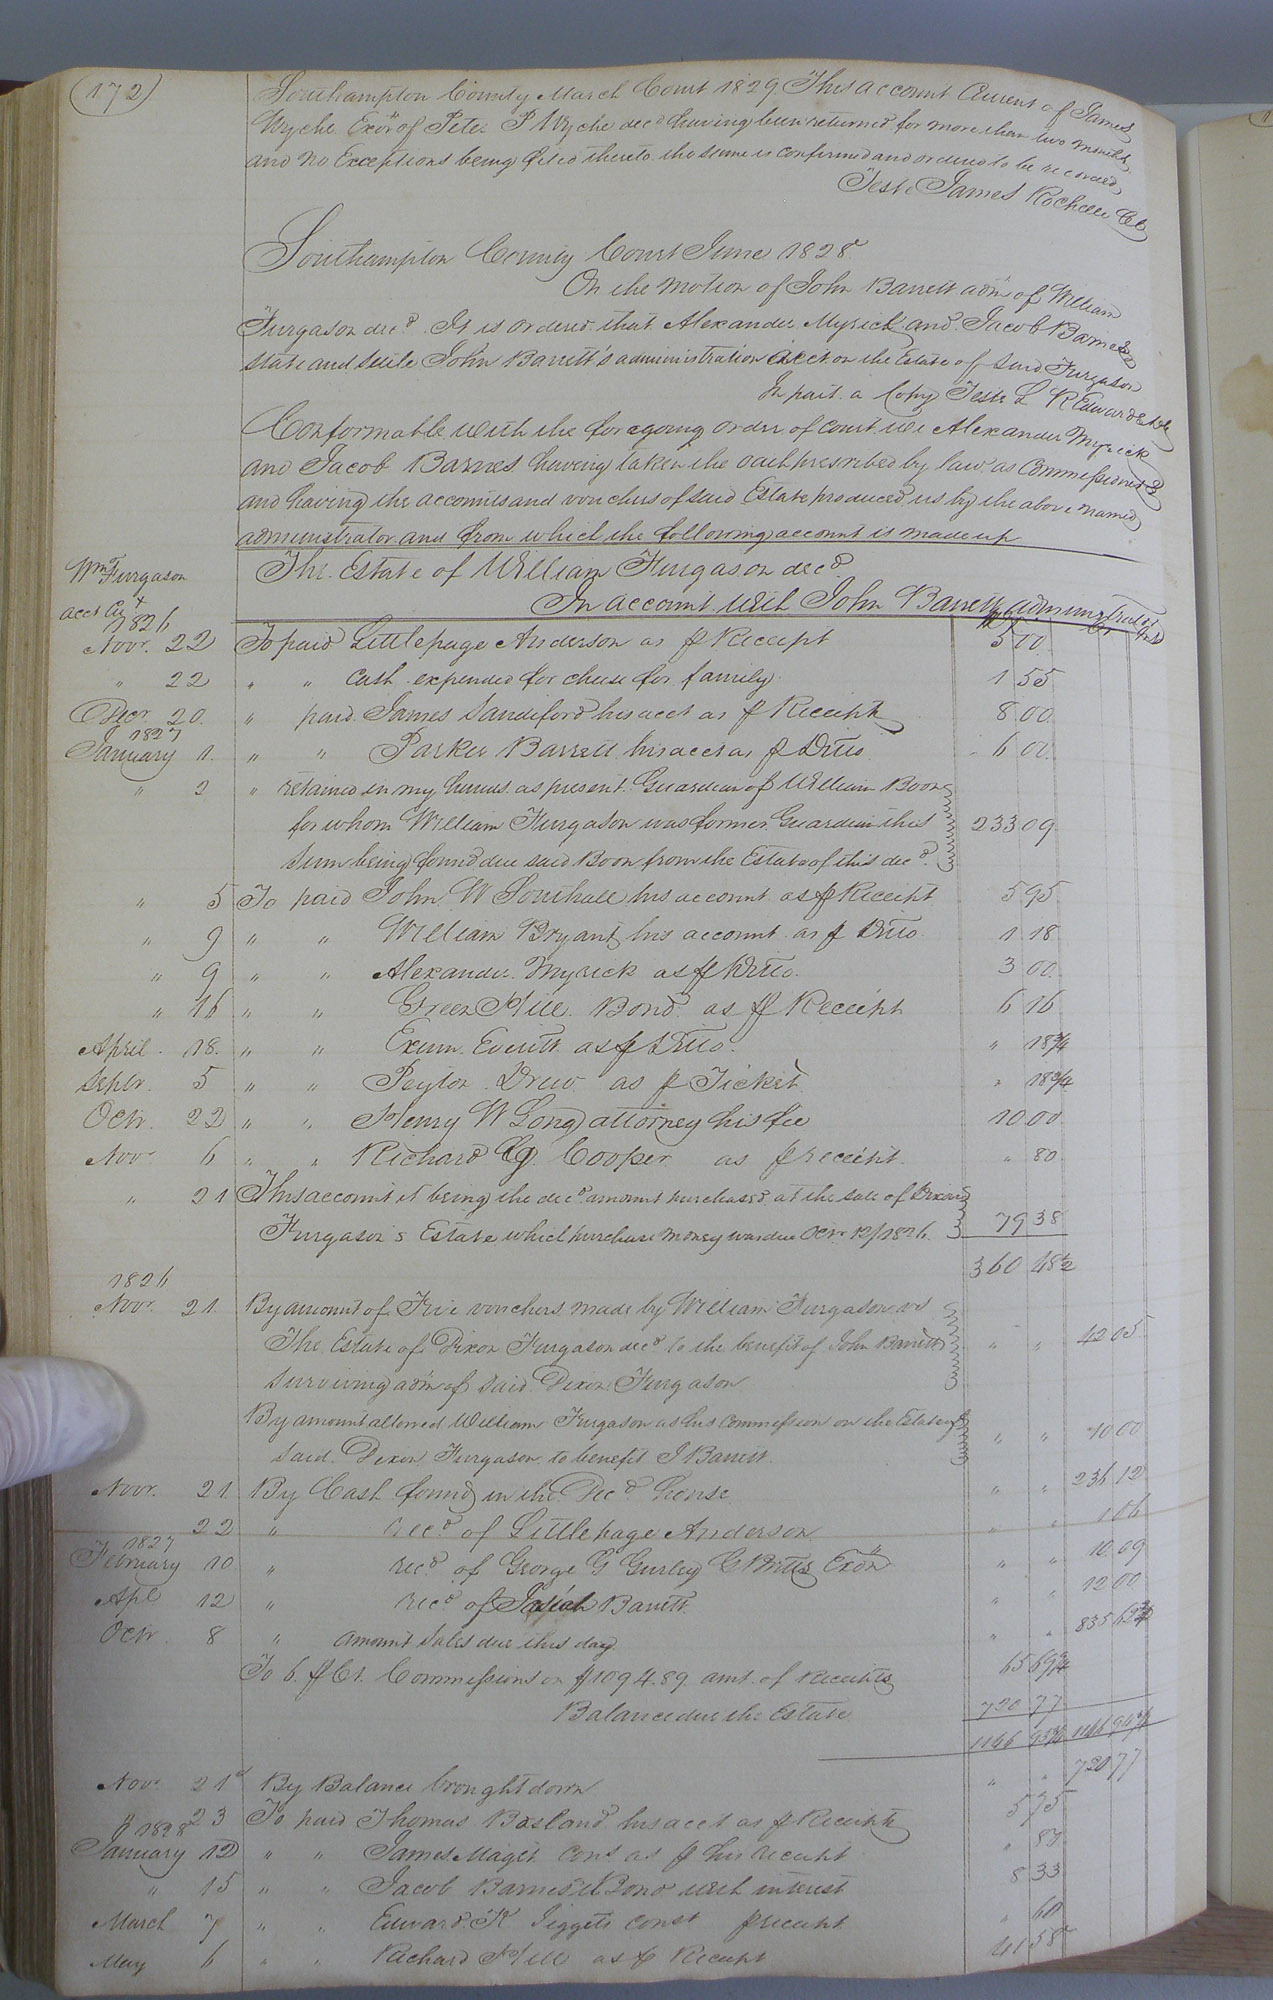 172
Southampton County March Court 1829 This account Current of James
Wyche Exōr of Peter P Wyche decd having been returned for more than two months
and no Exceptions being filed thereto the same is confirmed and ordered to be recorded
Teste James Rochelle Cl
Southampton County Court June 1828
On the motion of John Barrett adm̄ of William
Furgason decd. It is ordered that Alexander Myrick and Jacob Barnes
state and settle John Barrett's administration acct. on the Estate of said Furgason
In part a Copy Teste L R Edwards
Conformable with the foregoing order of court we Alexander Myrick
and Jacob Barnes having taken the oath prescribed by law as Commissioners
and having the accounts and vouchers of said Estate produced us by the above named
administrator and from which the following account is made up
Wm Furgason The Estate of William Furgason decd
acct Ct In account with John Barrett administrator
1826
Novr. 22 To paid Littlepage Anderson as p Receipt 5 00
" 22 " " Cash expended for cheese for family 1 55
Decr 20 " paid James Sandiford his acct as p Receipt 8 00
1827
January 1 " " Parker Barrett his acct as p Ditto 6 00
" 2 " retained in my hands as present Guardian of William Boon
for whom William Furgason was former Guardian this 233 09
sum being found due said Boon from the Estate of this decd.
" 5 To paid John W Southall his account as p Receipt 5 95
" 9 " " William Bryant his account as p Ditto 1 18
" 9 " " Alexander Myrick as p Ditto 3 00
" 16 " " Green Hill Bond as p Receipt 6 16
April 18 " " Exum Everitt as p Ditto " 18 3/4
Septr. 5 " " Peyton Drew as p Ticket " 18 3/4
Octr. 22 " " Henry W Long attorney his fee 10 00
Novr 6 " " Richard G. Cooper as p receipt " 80
" 21 This account it being the decd amount purchased at the sale of Dixon
Furgason's Estate which purchase money was due Octr 12/1826 79 38
360 48 1/2
1826
Novr. 21 By amount of Five vouchers made by William Furgason vs
The Estate of Dixon Furgason decd to the benefit of John Barrett " " 42 05
Surviving adm̄ of said Dixon Furgason
By amount allowed William Furgason as his commission on the Estate of
said Dixon Furgason to benefit J Barrett " " 10 00
Novr. 21 By Cash found in the Decd House " " 236 12
22 " recd of Littlepage Anderson " " 1 06
1827
February 10 " recd of George G Gurley C Britts Exōr " " 10 09
Apl 12 " recd of Josiah Barrett " " 12 00
Octr. 8 " amount Sales due this day " " 835 62 3/4
To 6 p Ct. Commissions on $1094.89 amt. of Receipts 65 69 3/4
Balance due the Estate 720 77
1146 95 1146 94 3/4
Nov. 21st By Balance brought down " " 720 77
" 23 To paid Thomas Basland his acct as p Receipt 5 75
1828
January 12 " " James Maget Const as p his receipt " 87
" 15 " " Jacob Barnes Bond with interest 8 33
March 7 " " Edward K Jiggetts Const p receipt " 60
May 6 " " Richard Hill as p Receipt 41 58